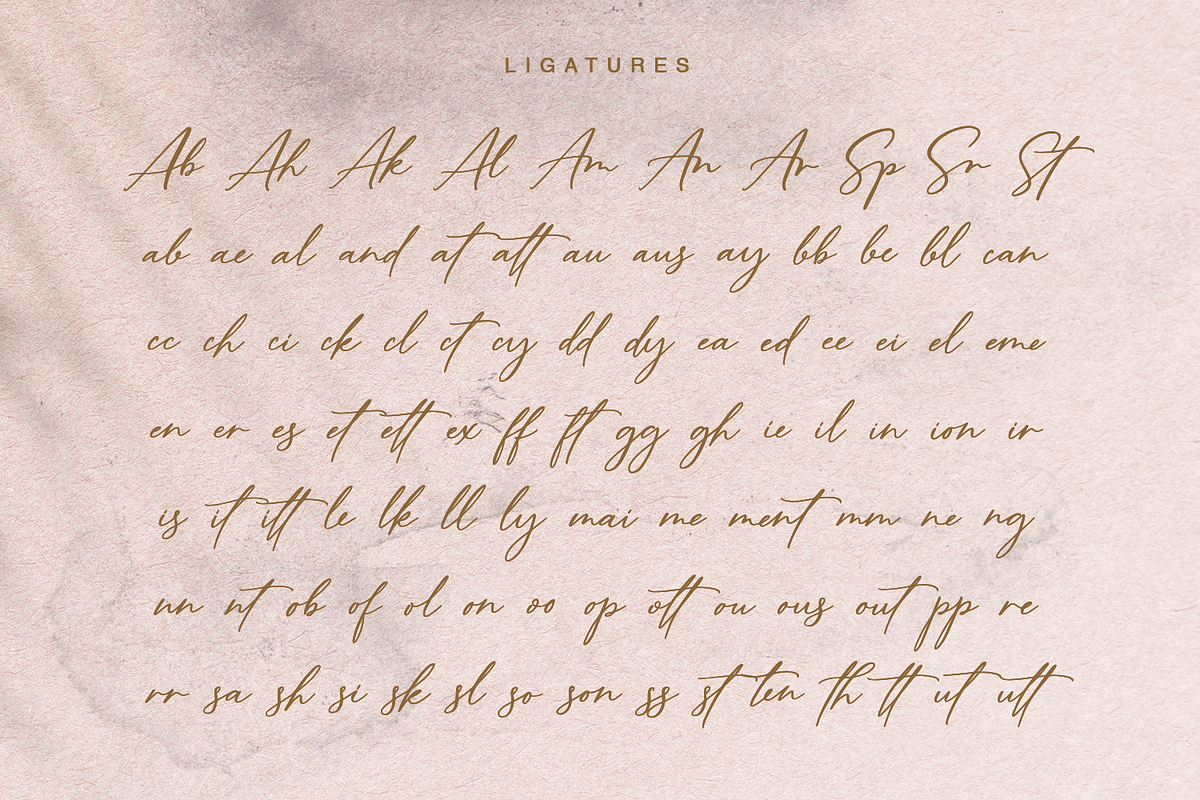 LIGATURES
Ab Ah Ak Al Am An Ar Sp Sr St
ab ae al and at att au aus ay bb be bl can
cc ch ci ck cl ct cy dd dy ea ed ee ei el eme
en er es et ett ex ff ft gg gh ie il in ion ir
is it itt le lk ll ly mai me ment mm ne ng
nn nt ob of ol on oo op ott ou ous out pp re
rr sa sh si sk sl so son ss st ten th tt ut utt